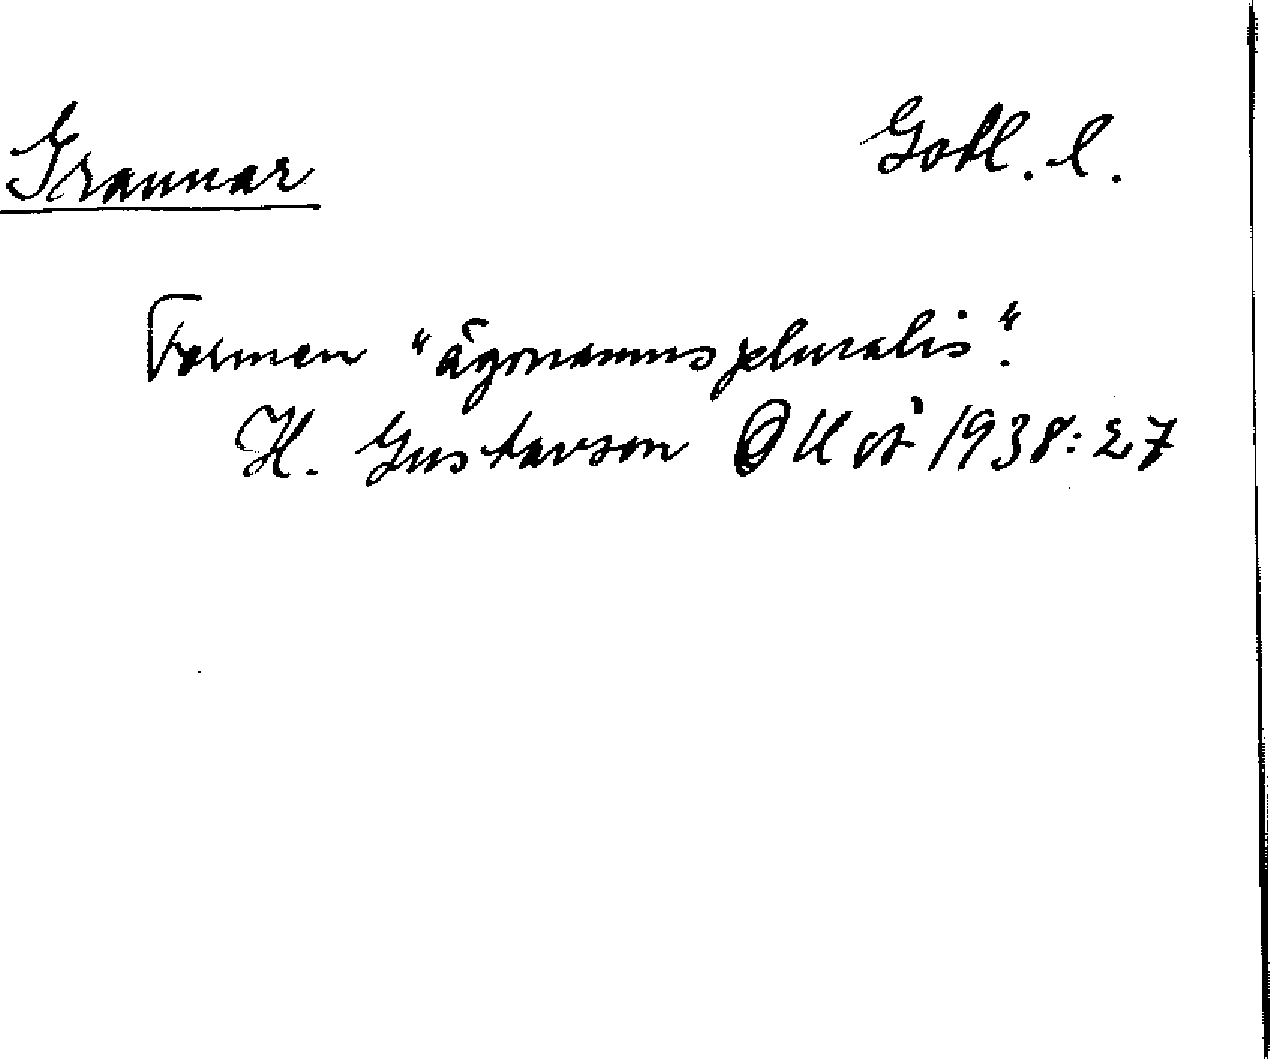 Grannar
Gotl. l.
Formen "ägonamns pluralis".
H. Gustavson 1938:27